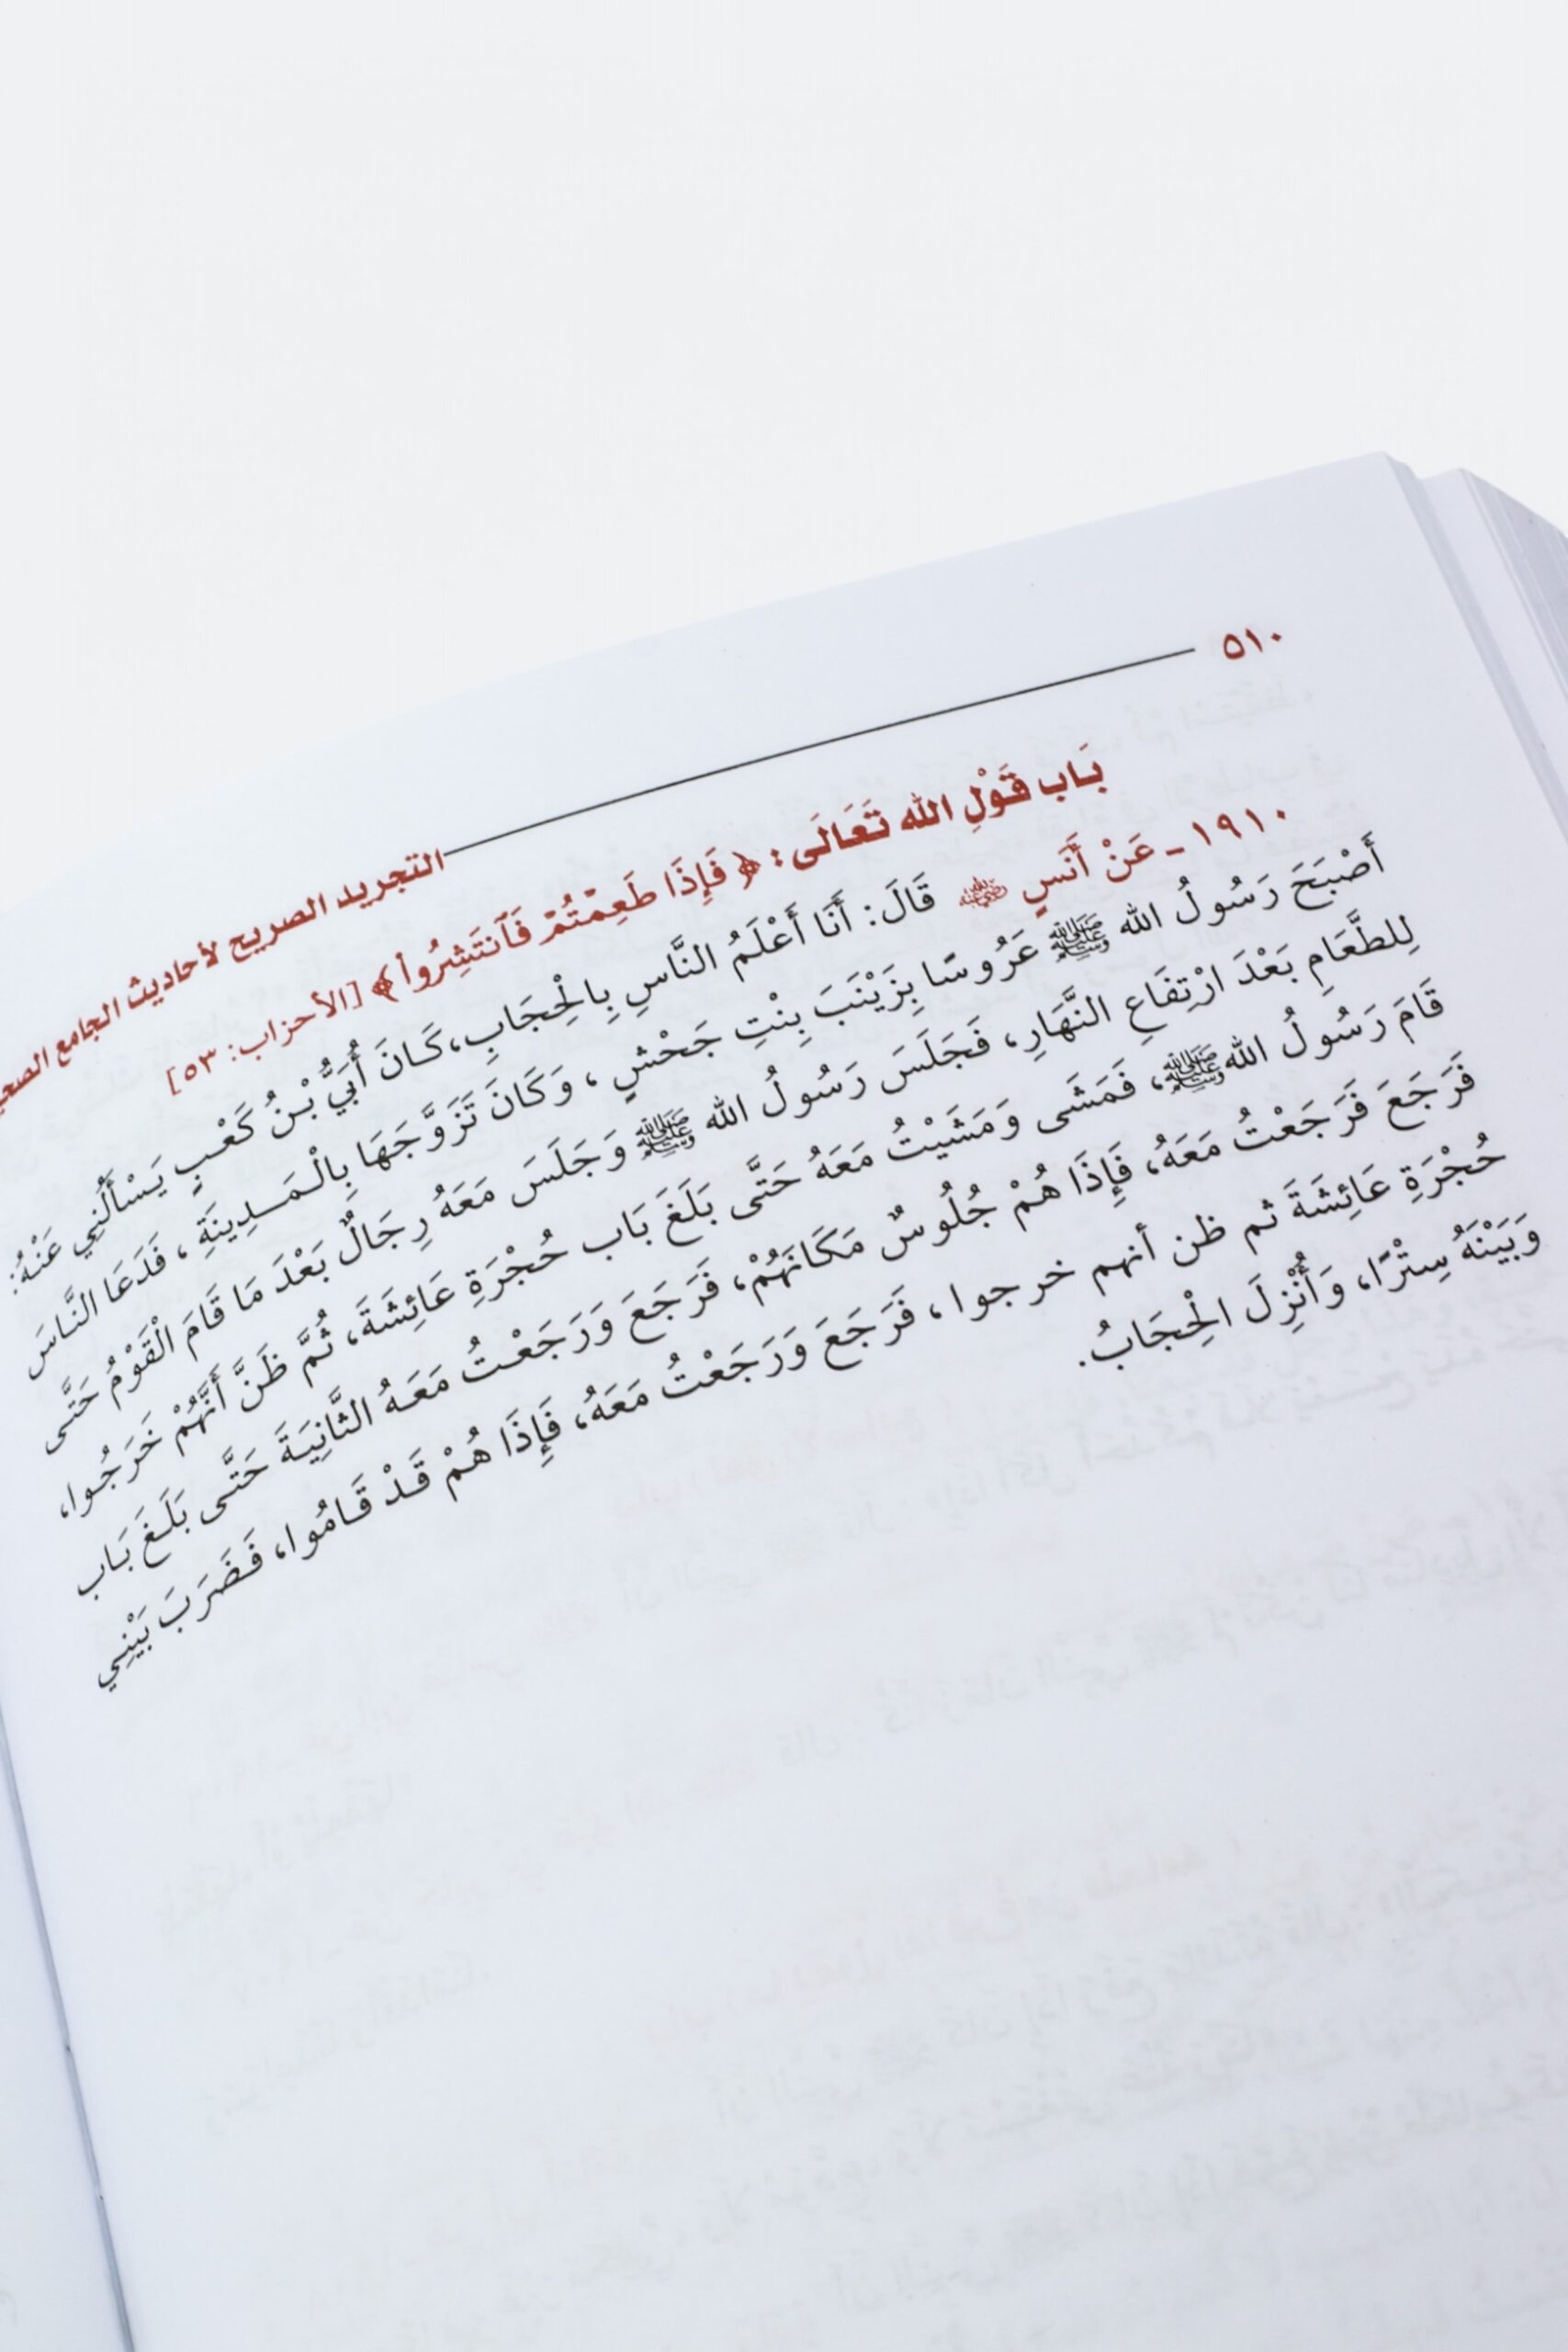 ٥١٠
التجريد الصريح لأحاديث الجامع
بَاب قَوْلِ الله تَعَالَى: ﴿ فَإِذَا طَعِمْتُمْ فَٱنتَشِرُوا۟ ﴾ [الأحزاب: ٥٣]
١٩١٠ - عَنْ أَنَسٍ ﵁ قَالَ: أَنَا أَعْلَمُ النَّاسِ بِالْحِجَابِ، كَانَ أُبَيُّ بْنُ كَعْبٍ يَسْأَلُنِي عَنْهُ:
أَصْبَحَ رَسُولُ الله ﷺ عَرُوسًا بِزَيْنَبَ بِنْتِ جَحْشٍ، وَكَانَ تَزَوَّجَهَا بِالْمَدِينَةِ، فَدَعَا النَّاسَ
لِلطَّعَامِ بَعْدَ ارْتِفَاعِ النَّهَارِ، فَجَلَسَ رَسُولُ الله ﷺ وَجَلَسَ مَعَهُ رِجَالٌ بَعْدَ مَا قَامَ الْقَوْمُ حَتَّى
قَامَ رَسُولُ الله ﷺ، فَمَشَى وَمَشَيْتُ مَعَهُ حَتَّى بَلَغَ بَاب حُجْرَةِ عَائِشَةَ، ثُمَّ ظَنَّ أَنَّهُمْ خَرَجُوا،
فَرَجَعَ فَرَجَعْتُ مَعَهُ، فَإِذَا هُمْ جُلُوسٌ مَكَانَهُمْ، فَرَجَعَ وَرَجَعْتُ مَعَهُ الثَّانِيَةَ حَتَّى بَلَغَ بَاب
حُجْرَةِ عَائِشَةَ ثم ظن أنهم خرجوا، فَرَجَعَ وَرَجَعْتُ مَعَهُ، فَإِذَا هُمْ قَدْ قَامُوا، فَضَرَبَ بَيْنِي
وَبَيْنَهُ سِتْرًا، وَأُنْزِلَ الْحِجَابُ.